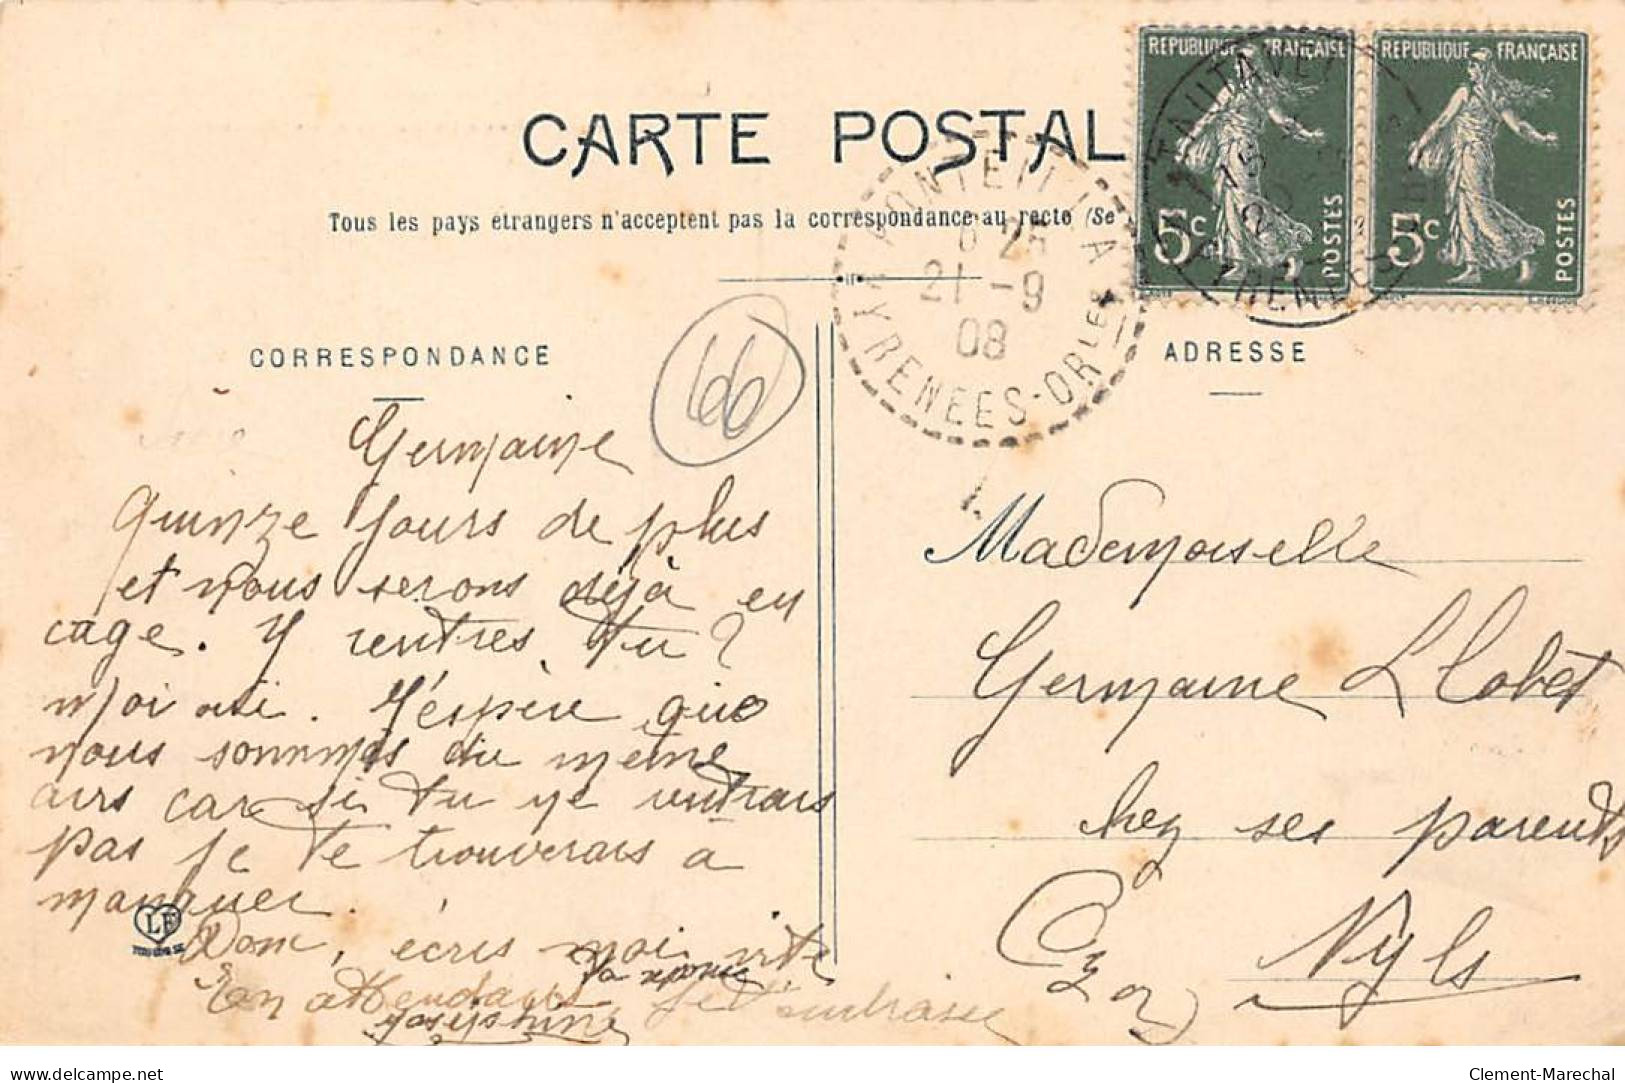 CARTE POSTAL
Tous les pays étrangers n'acceptent pas la correspondance au recto (Se
REPUBLIQUE FRANÇAISE
5c
POSTES
REPUBLIQUE FRANÇAISE
5c
POSTES
TAUTAVEL
PYRENEES-ORLES
21 -9
08
CORRESPONDANCE
ADRESSE
66
Germaine
Quinze jours de plus
et nous serons déjà en
cage. Y rentres tu ?
Moi oui. J'éspère que
nous sommes du même
avis car si tu ne rentrais
pas je te trouverais a
manquer.
Donc, écris moi vite
En attendant ta réponse je t'embrasse
Joséphine
Mademoiselle
Germaine Llobèt
chez ses parents
Nyls
LF
delcampe.net
Clement-Marechal